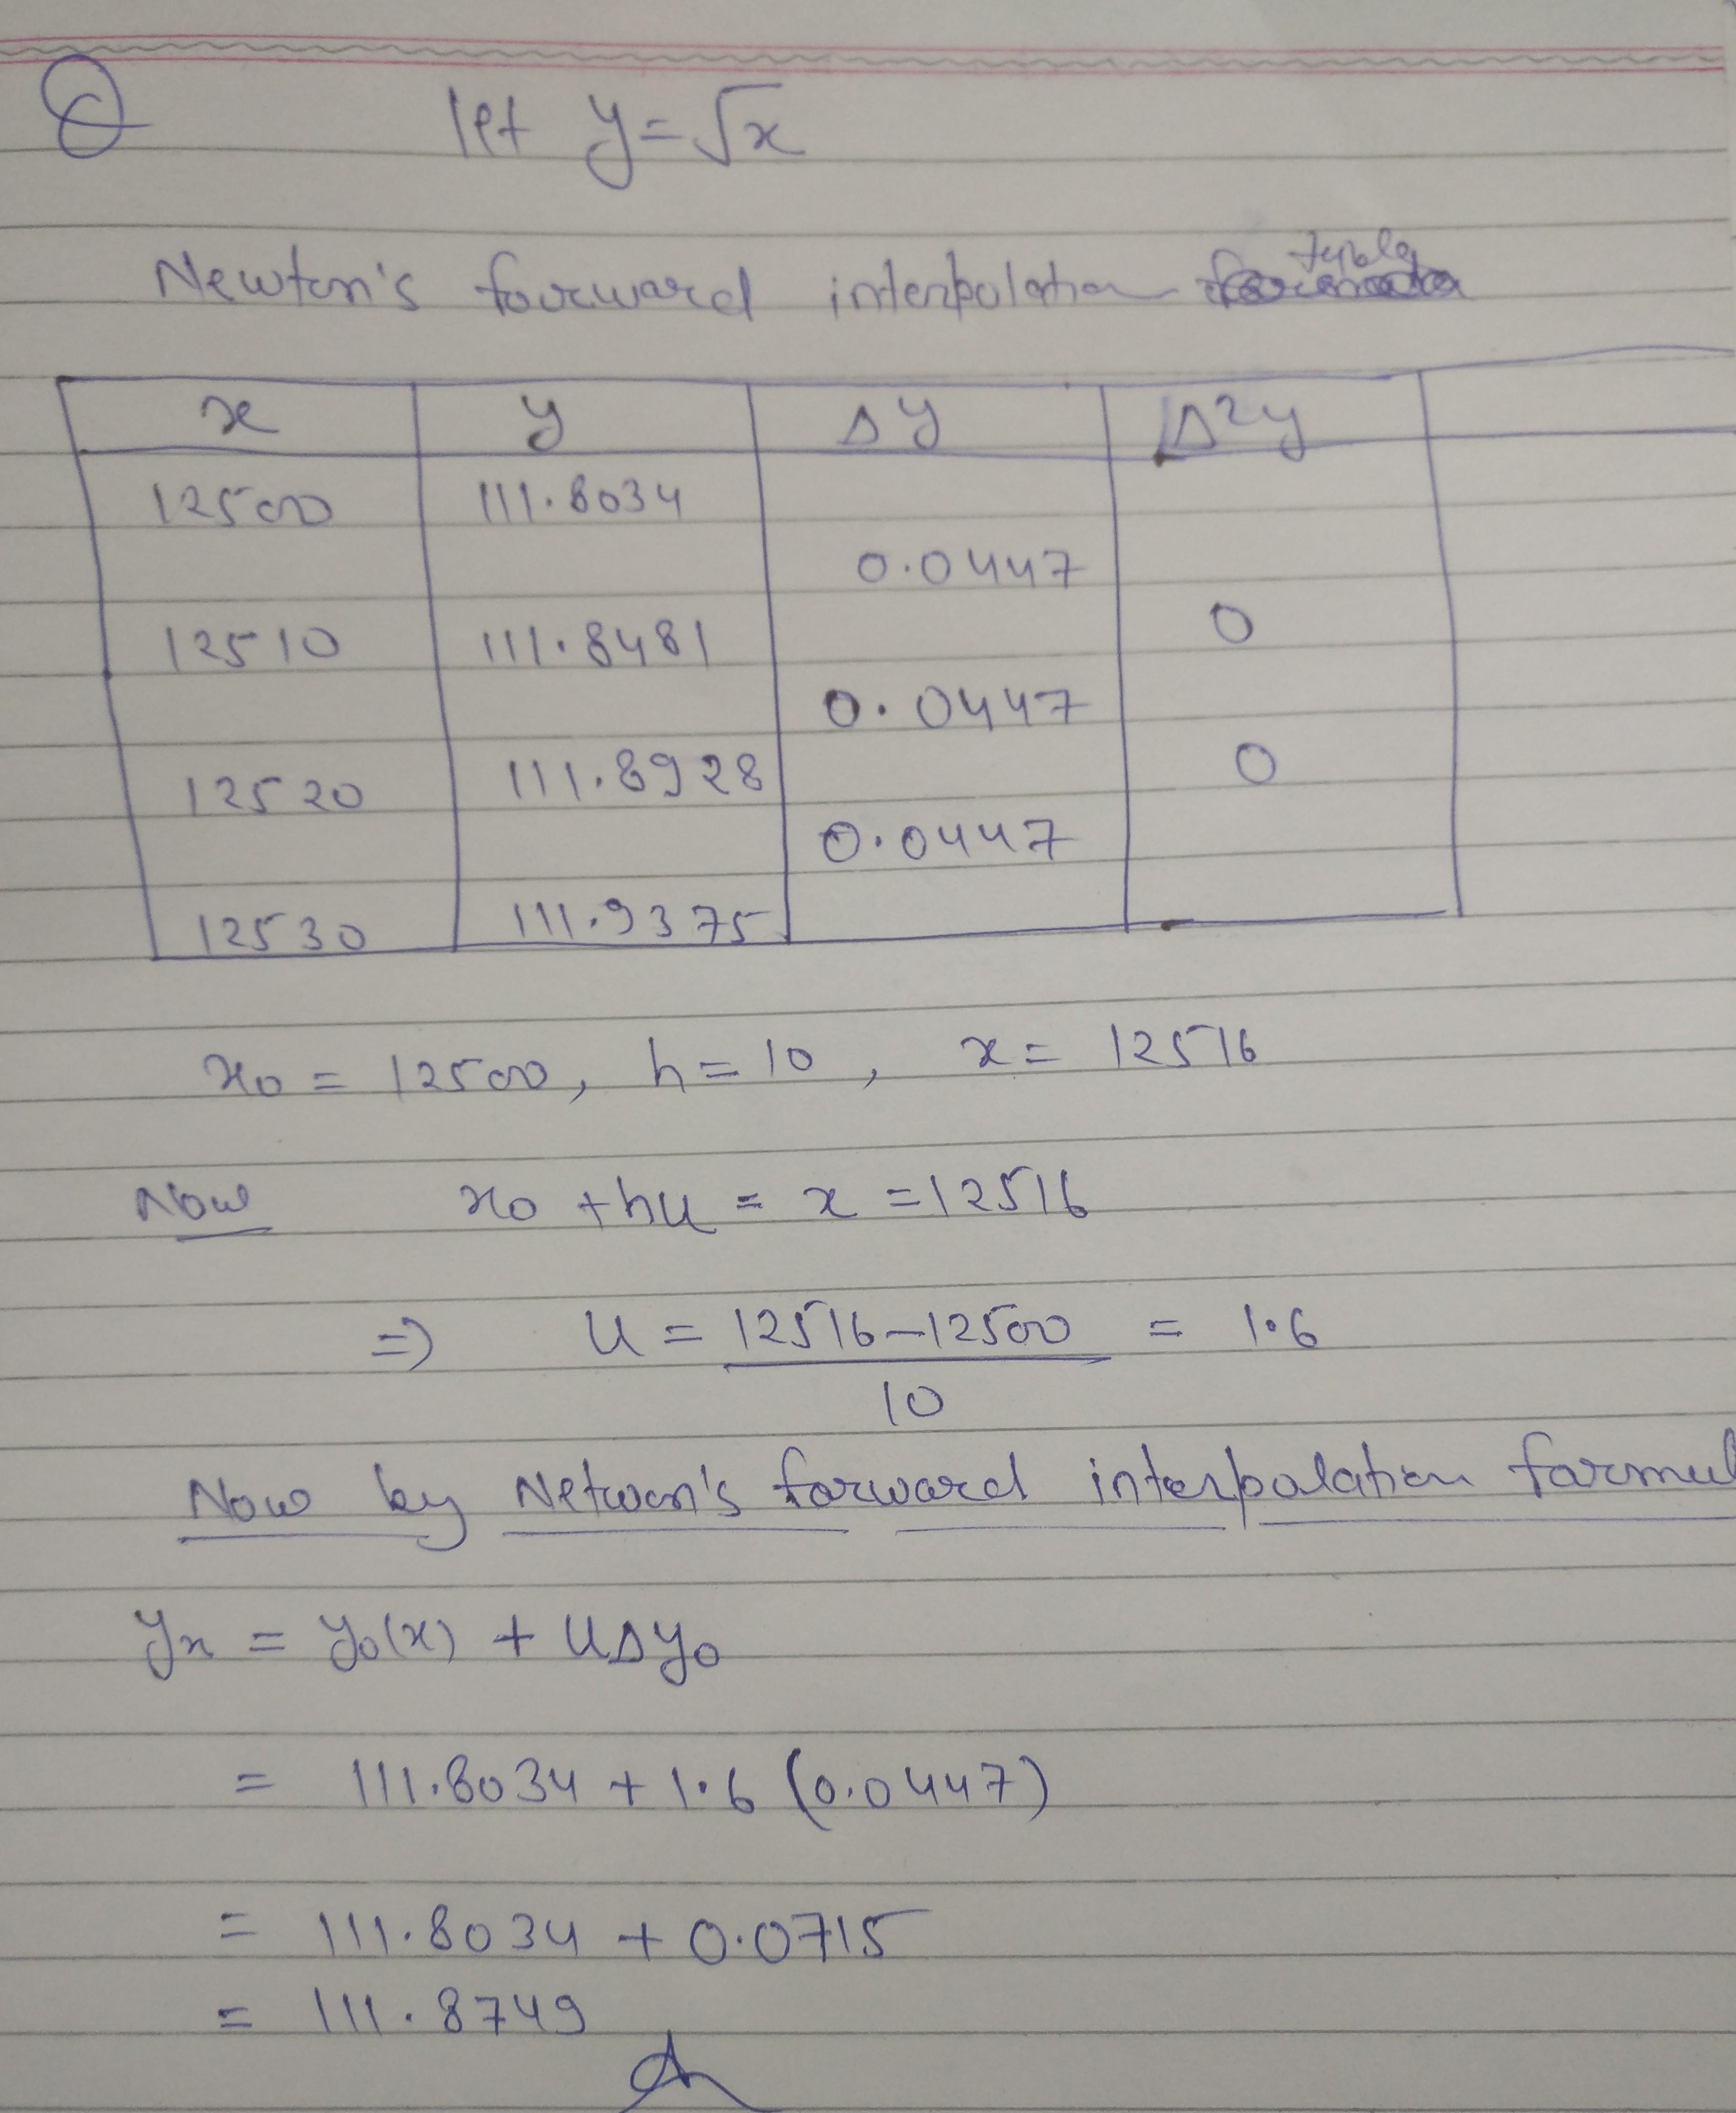 Q let y = √x
Newton's forward interpolation table
x y Δy Δ²y
12500 111.8034
0.0447
12510 111.8481 0
0.0447
12520 111.8928 0
0.0447
12530 111.9375
x₀ = 12500, h = 10, x = 12516
Now x₀ + hu = x = 12516
⇒ u = 12516-12500 = 1.6
10
Now by Netwon's forward interpolation formul
yₙ = y₀(x) + uΔy₀
= 111.8034 + 1.6 (0.0447)
= 111.8034 + 0.0715
= 111.8749